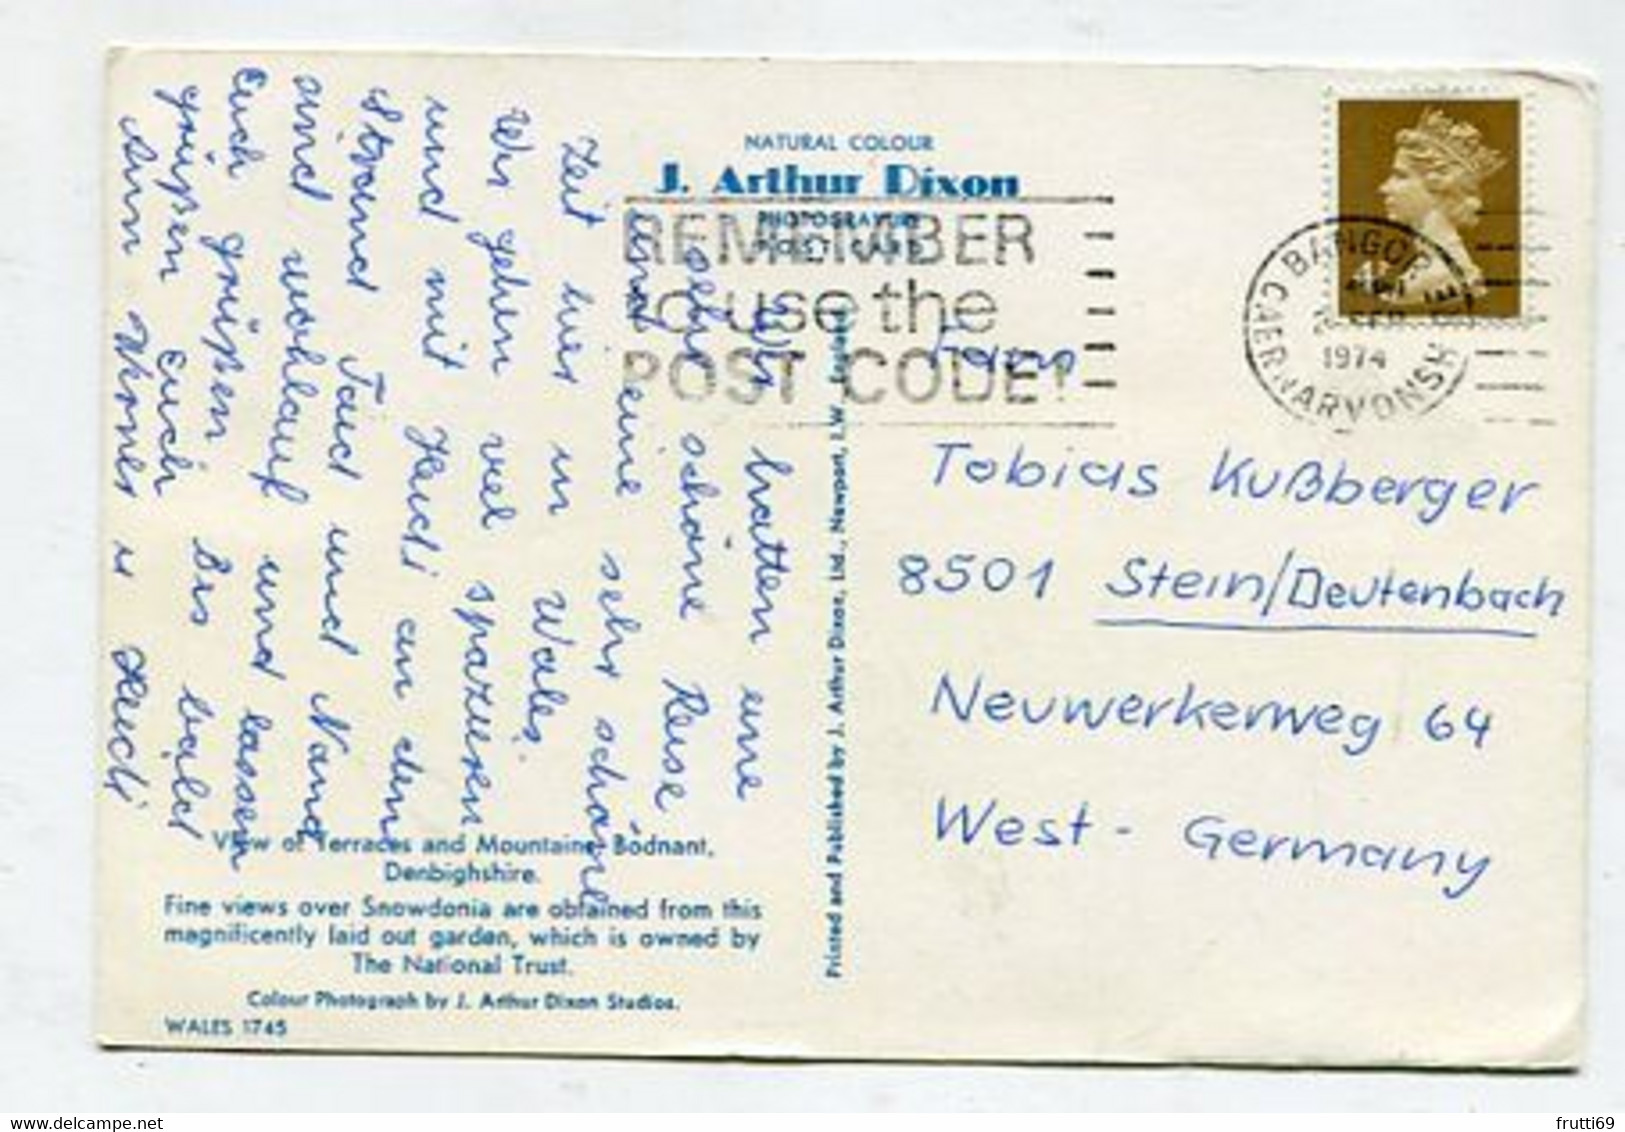 Wir hatten eine
sehr schöne Reise
und eine sehr schöne
Zeit hier in Wales.
Wir gehen viel spazieren
und mit Heidi an den
Strand
sind wohlauf und lassen
Euch grüßen. Bis bald
grüßen Euch
u Heidi
View of Terraces and Mountains, Bodnant,
Denbighshire.
Fine views over Snowdonia are obtained from this
magnificently laid out garden, which is owned by
The National Trust.
Colour Photograph by J. Arthur Dixon Studios.
WALES 1745
Printed and Published by J. Arthur Dixon, Ltd., Newport, I.W. England
NATURAL COLOUR
J. Arthur Dixon
PHOTOGRAVURE
POST CARD
REMEMBER
to use the
POST CODE!
BANGOR
CAERNARVONSH
FEB
1974
Tobias Kußberger
8501 Stein/Deutenbach
Neuwerkerweg 64
West-Germany
frutti69